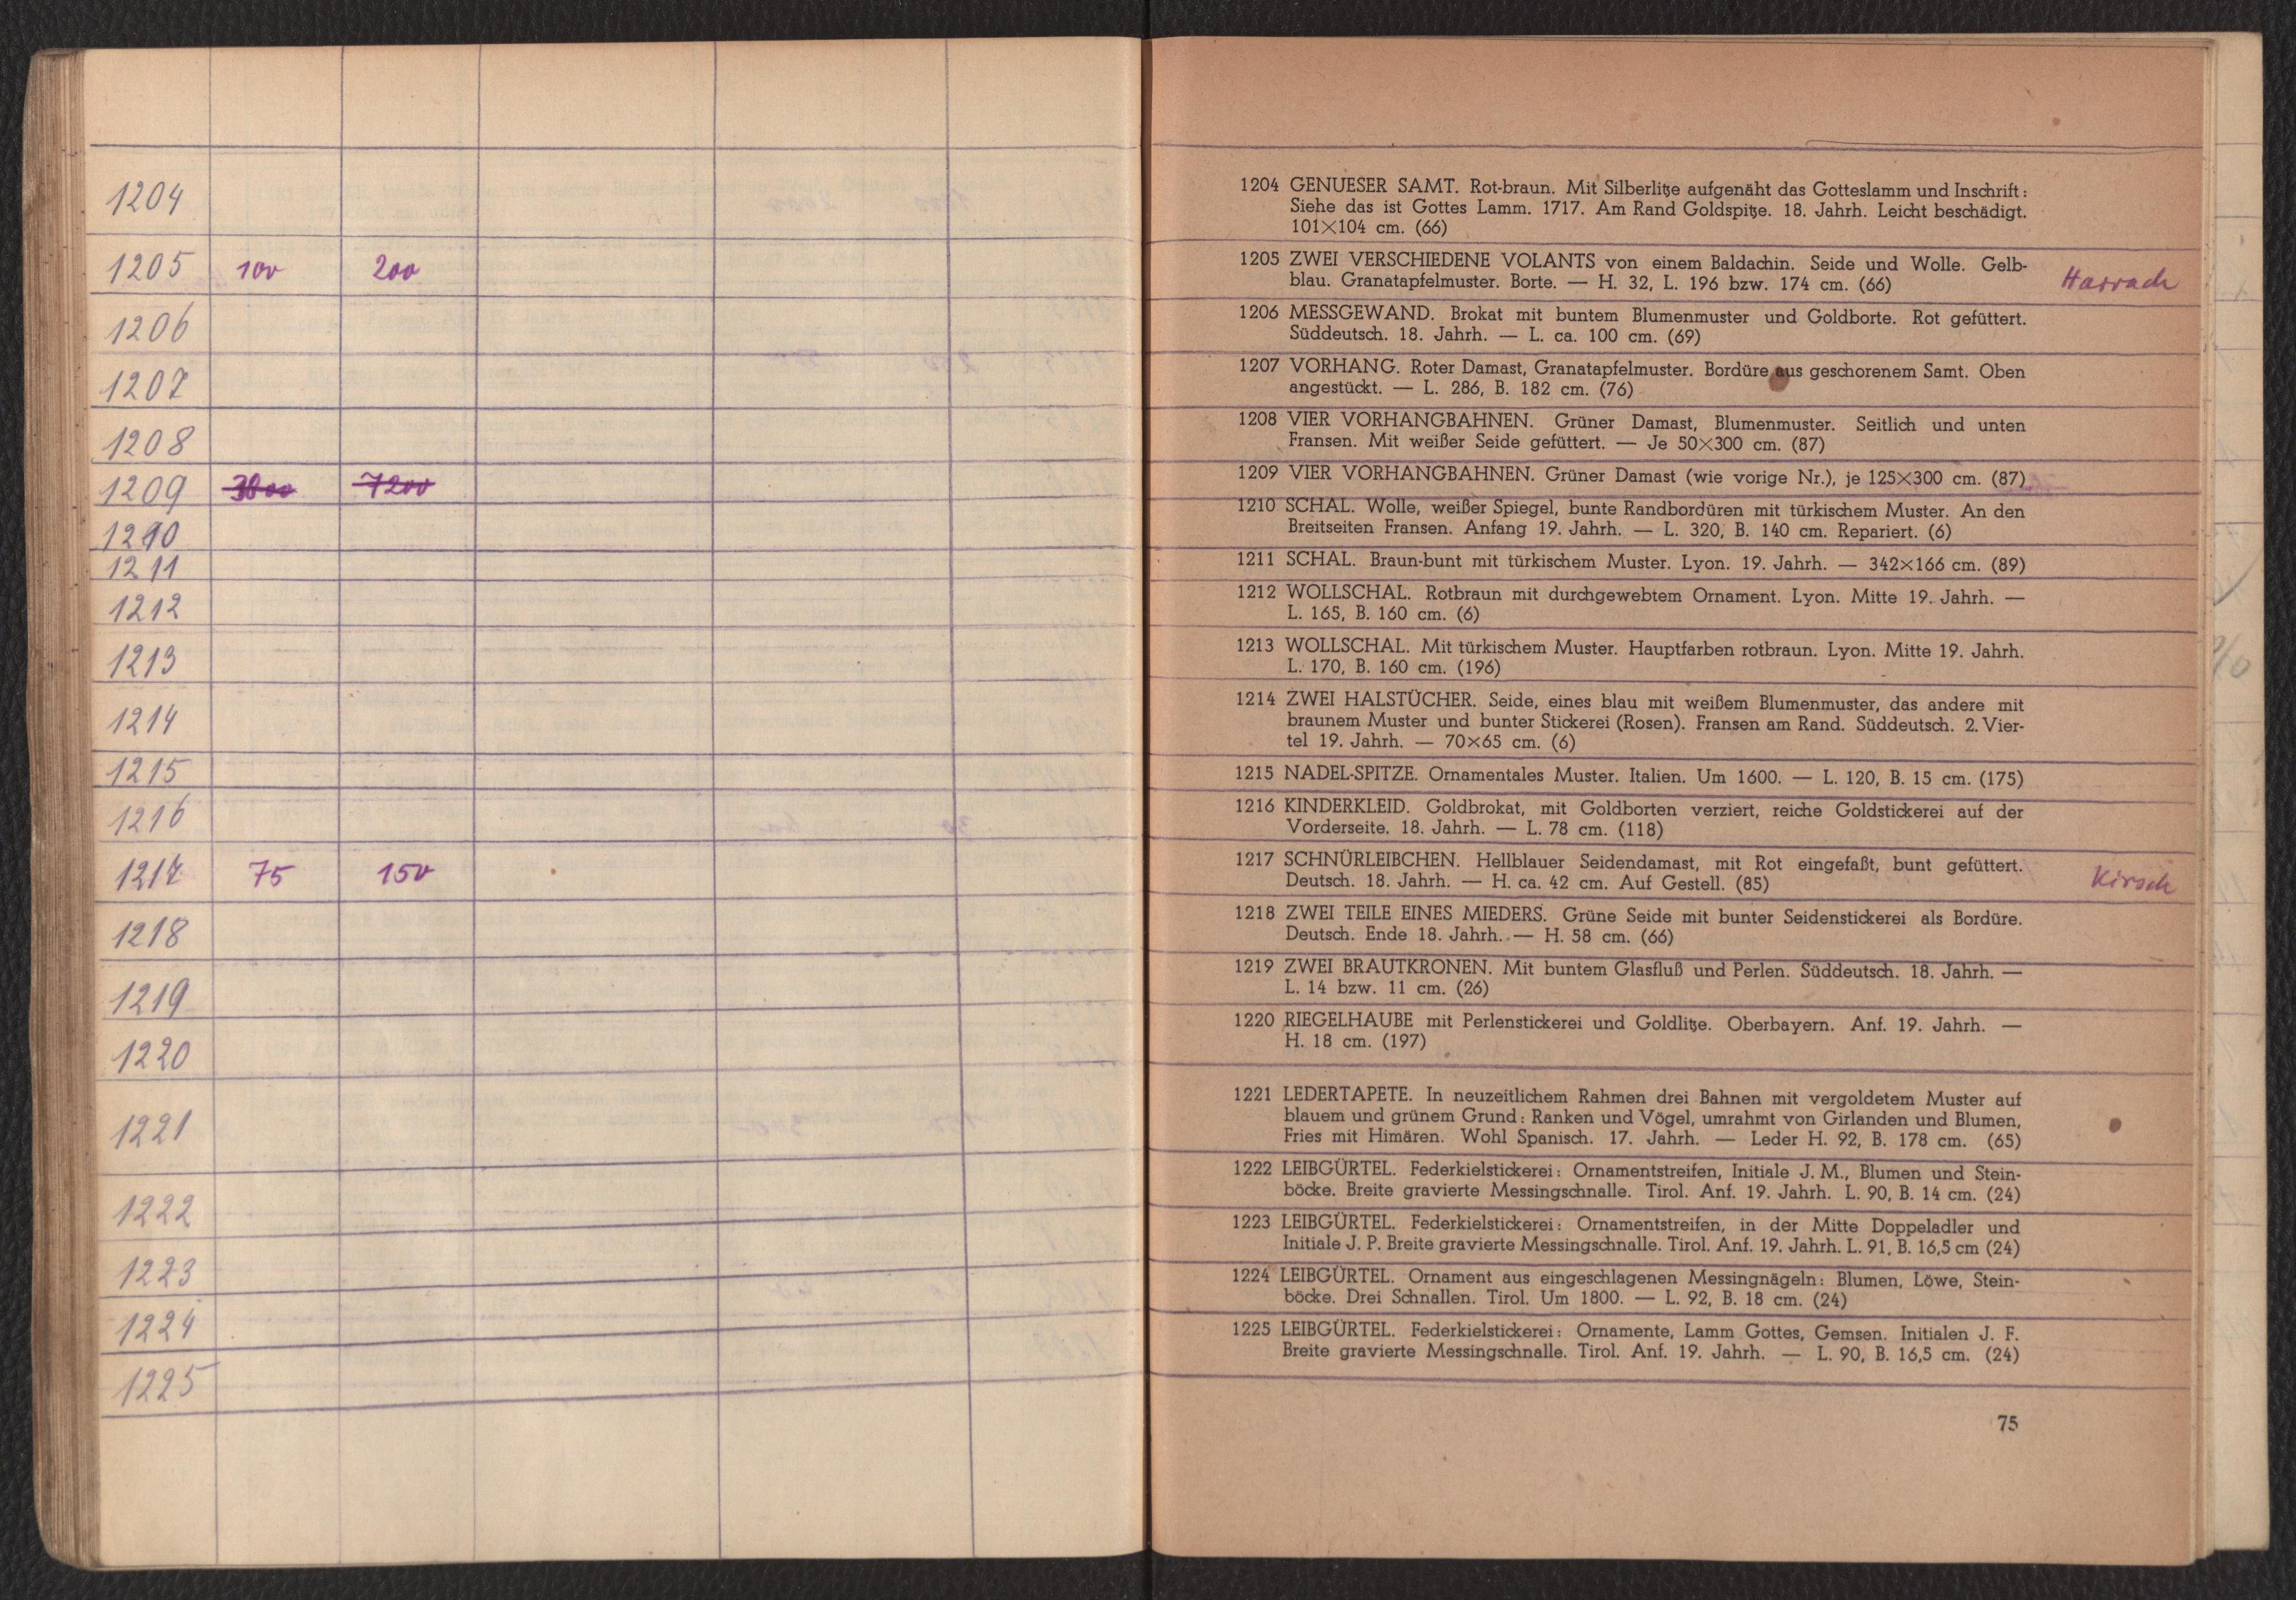 1204
1205 100 200
1206
1207
1208
1209 7200
1210
1211
1212
1213
1214
1215
1216
1217 75 150
1218
1219
1220
1221
1222
1223
1224
1225
1204 GENUESER SAMT. Rot-braun. Mit Silberlitze aufgenäht das Gotteslamm und Inschrift:
Siehe das ist Gottes Lamm. 1717. Am Rand Goldspitze. 18. Jahrh. Leicht beschädigt.
101×104 cm. (66)
1205 ZWEI VERSCHIEDENE VOLANTS von einem Baldachin. Seide und Wolle. Gelb-
blau. Granatapfelmuster. Borte. — H. 32, L. 196 bzw. 174 cm. (66)
Harrach
1206 MESSGEWAND. Brokat mit buntem Blumenmuster und Goldborte. Rot gefüttert.
Süddeutsch. 18. Jahrh. — L. ca. 100 cm. (69)
1207 VORHANG. Roter Damast, Granatapfelmuster. Bordüre aus geschorenem Samt. Oben
angestückt. — L. 286, B. 182 cm. (76)
1208 VIER VORHANGBAHNEN. Grüner Damast, Blumenmuster. Seitlich und unten
Fransen. Mit weißer Seide gefüttert. — Je 50×300 cm. (87)
1209 VIER VORHANGBAHNEN. Grüner Damast (wie vorige Nr.), je 125×300 cm. (87)
1210 SCHAL. Wolle, weißer Spiegel, bunte Randbordüren mit türkischem Muster. An den
Breitseiten Fransen. Anfang 19. Jahrh. — L. 320, B. 140 cm. Repariert. (6)
1211 SCHAL. Braun-bunt mit türkischem Muster. Lyon. 19. Jahrh. — 342×166 cm. (89)
1212 WOLLSCHAL. Rotbraun mit durchgewebtem Ornament. Lyon. Mitte 19. Jahrh. —
L. 165, B. 160 cm. (6)
1213 WOLLSCHAL. Mit türkischem Muster. Hauptfarben rotbraun. Lyon. Mitte 19. Jahrh.
L. 170, B. 160 cm. (196)
1214 ZWEI HALSTÜCHER. Seide, eines blau mit weißem Blumenmuster, das andere mit
braunem Muster und bunter Stickerei (Rosen). Fransen am Rand. Süddeutsch. 2. Vier-
tel 19. Jahrh. — 70×65 cm. (6)
1215 NADEL-SPITZE. Ornamentales Muster. Italien. Um 1600. — L. 120, B. 15 cm. (175)
1216 KINDERKLEID. Goldbrokat, mit Goldborten verziert, reiche Goldstickerei auf der
Vorderseite. 18. Jahrh. — L. 78 cm. (118)
1217 SCHNÜRLEIBCHEN. Hellblauer Seidendamast, mit Rot eingefaßt, bunt gefüttert.
Deutsch. 18. Jahrh. — H. ca. 42 cm. Auf Gestell. (85)
Kirsch
1218 ZWEI TEILE EINES MIEDERS. Grüne Seide mit bunter Seidenstickerei als Bordüre.
Deutsch. Ende 18. Jahrh. — H. 58 cm. (66)
1219 ZWEI BRAUTKRONEN. Mit buntem Glasfluß und Perlen. Süddeutsch. 18. Jahrh. —
L. 14 bzw. 11 cm. (26)
1220 RIEGELHAUBE mit Perlenstickerei und Goldlitze. Oberbayern. Anf. 19. Jahrh. —
H. 18 cm. (197)
1221 LEDERTAPETE. In neuzeitlichem Rahmen drei Bahnen mit vergoldetem Muster auf
blauem und grünem Grund: Ranken und Vögel, umrahmt von Girlanden und Blumen,
Fries mit Himären. Wohl Spanisch. 17. Jahrh. — Leder H. 92, B. 178 cm. (65)
1222 LEIBGÜRTEL. Federkielstickerei: Ornamentstreifen, Initiale J. M., Blumen und Stein-
böcke. Breite gravierte Messingschnalle. Tirol. Anf. 19. Jahrh. L. 90, B. 14 cm. (24)
1223 LEIBGÜRTEL. Federkielstickerei: Ornamentstreifen, in der Mitte Doppeladler und
Initiale J. P. Breite gravierte Messingschnalle. Tirol. Anf. 19. Jahrh. L. 91, B. 16,5 cm (24)
1224 LEIBGÜRTEL. Ornament aus eingeschlagenen Messingnägeln: Blumen, Löwe, Stein-
böcke. Drei Schnallen. Tirol. Um 1800. — L. 92, B. 18 cm. (24)
1225 LEIBGÜRTEL. Federkielstickerei: Ornamente, Lamm Gottes, Gemsen. Initialen J. F.
Breite gravierte Messingschnalle. Tirol. Anf. 19. Jahrh. — L. 90, B. 16,5 cm. (24)
75